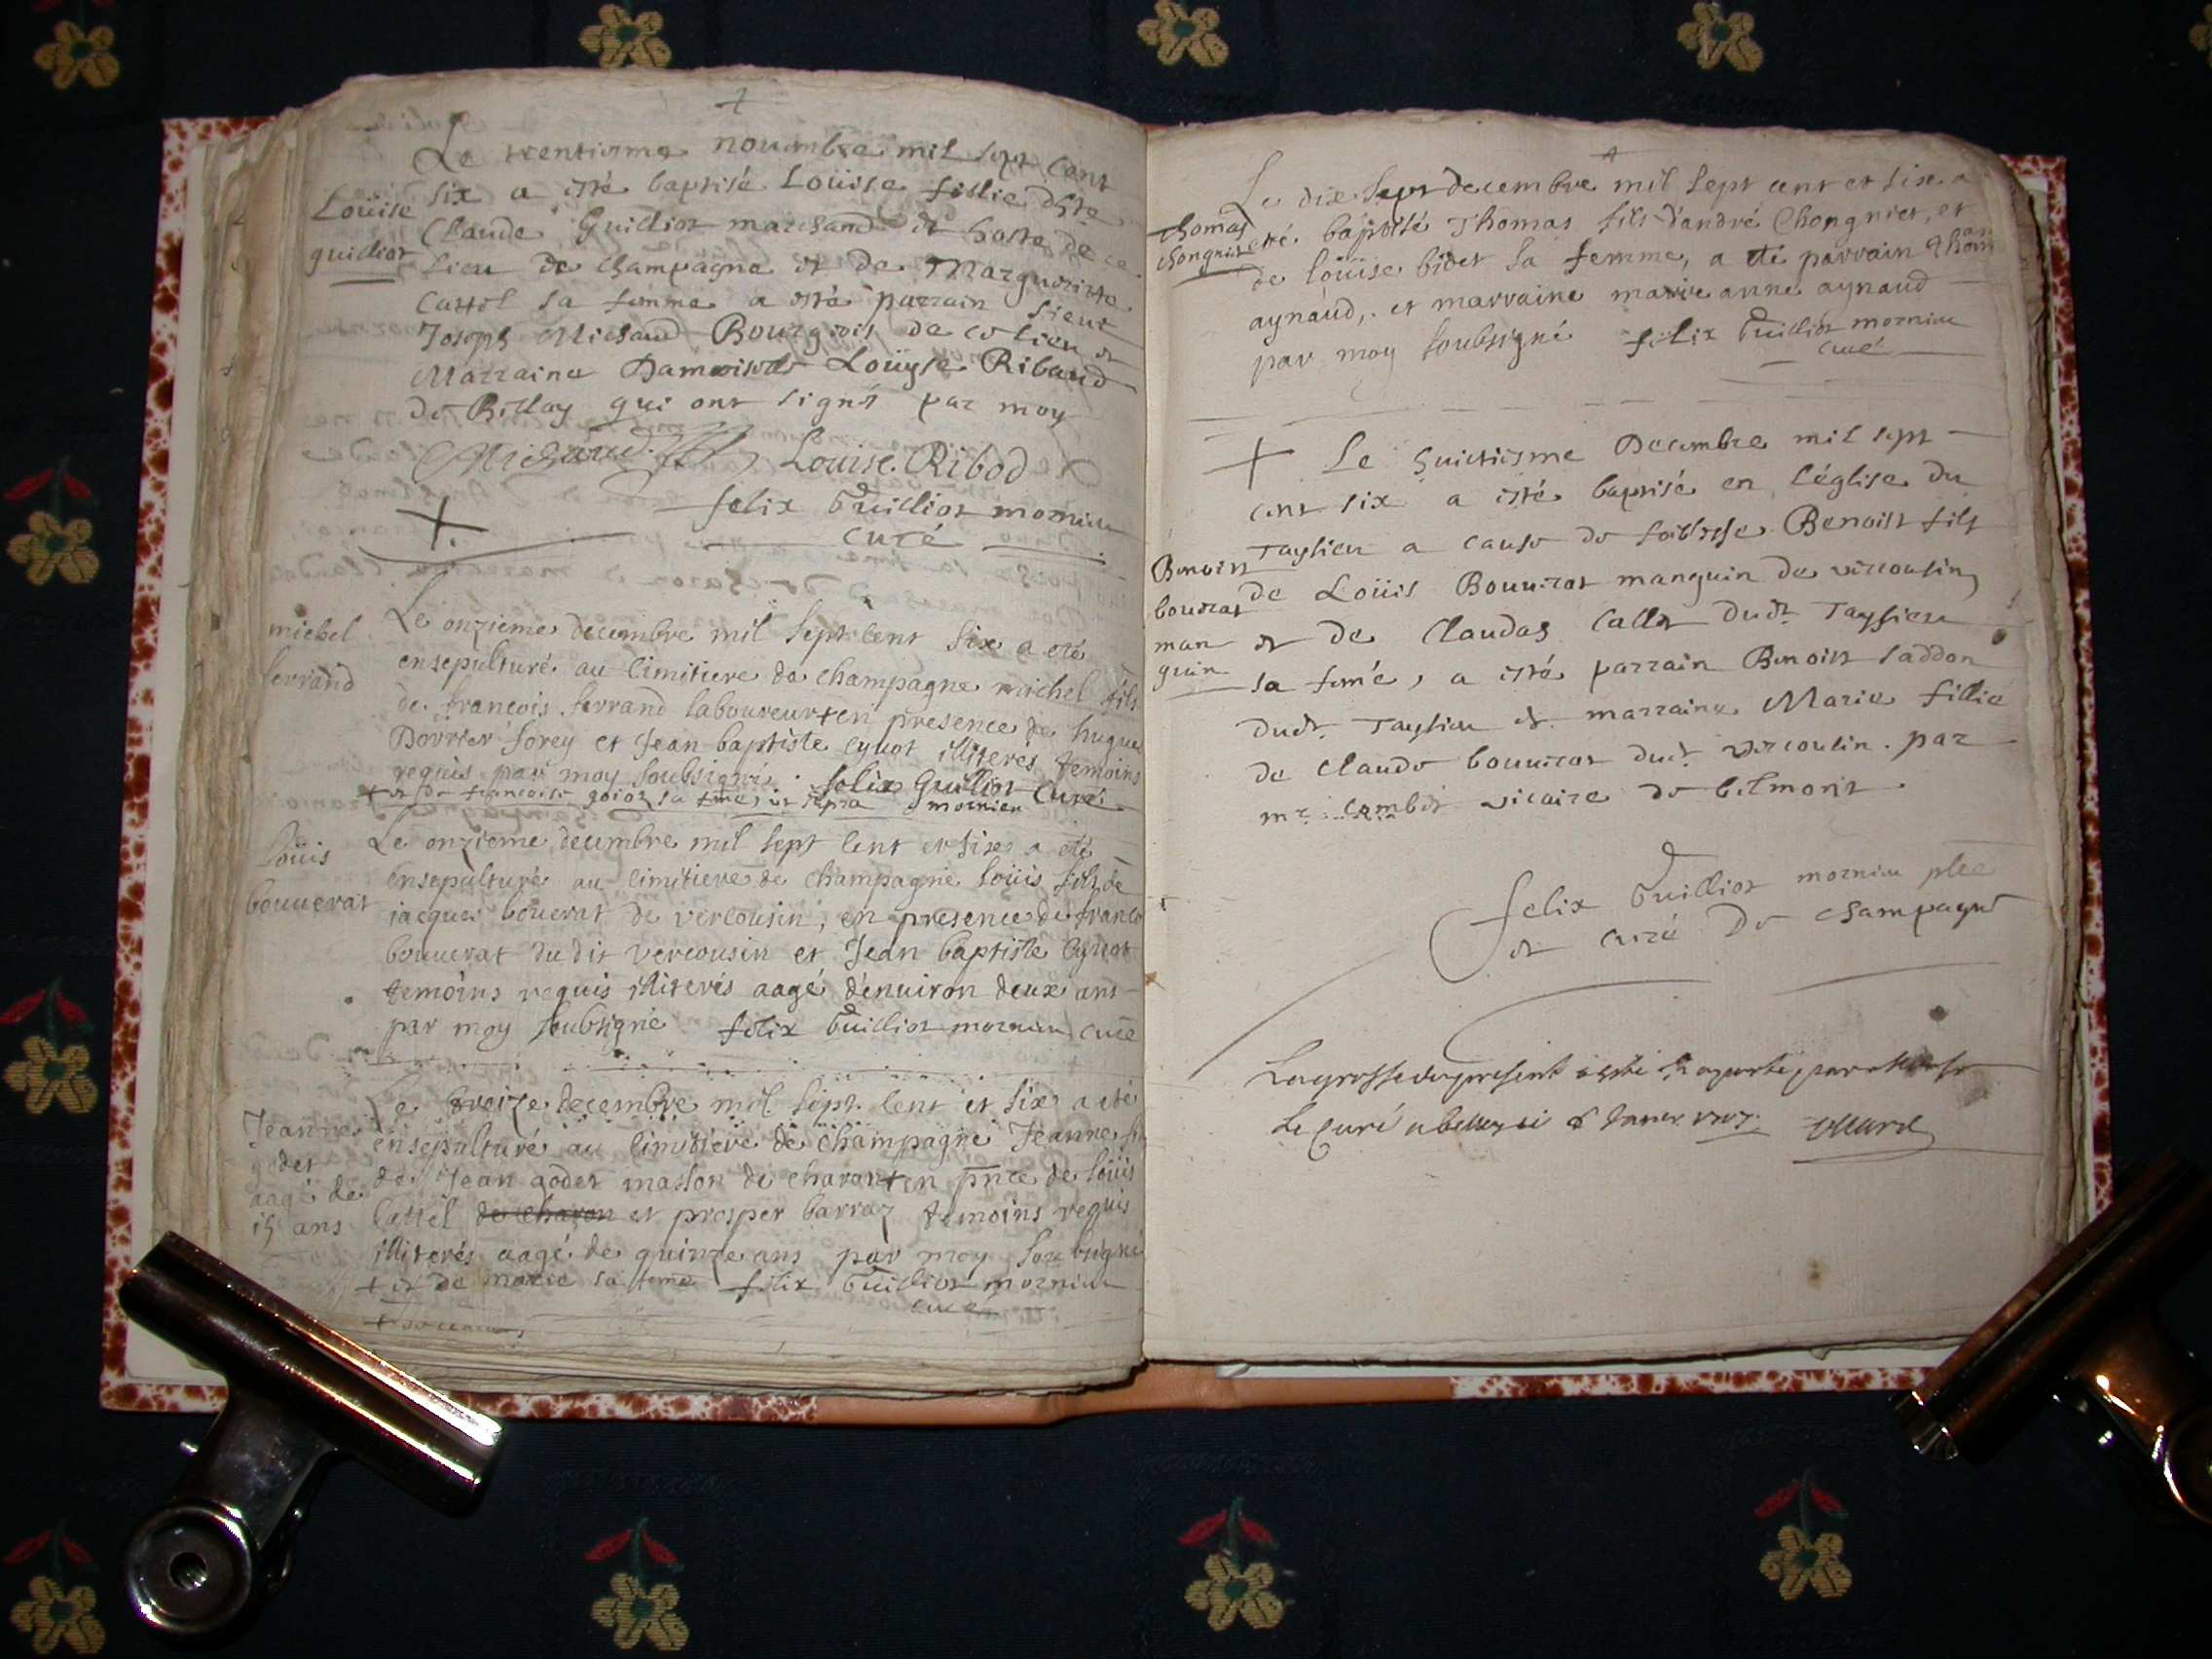 Le trentiesme nouembre mil sept cent
six a esté baptisé Loüise fillie d'hte
Loüise
guilliot
Claude Guilliot marchand et hoste de ce
lieu de champagne et de Margueritte
Cattel sa femme a esté parrain sieur
Joseph Michaud Bourgeois de ce lieu et
Marraine Damoiselle Loüyse Ribaud
de Billay qui ont signé par moy
Michaud Louise Ribod
felix Guilliot mornieu
curé
michel
ferrand
Le onzieme decembre mil sept cent six a eté
ensepulturé au cimitiere de champagne michel fils
de francois ferrand laboureur + en presence de hugue
Borrier forey et Jean baptiste cynot illiterés temoins
requis par moy soubsigné felix Guilliot Curé
+ et de francoise goiot sa fme, et supra mornieu
Loüis
bouuerat
Le onzieme decembre mil sept cent et six a eté
ensepulturé au cimitiere de champagne loüis fils de
jacques bouerat de vercousin, en presence de franco
bouuerat du dit vercousin et Jean baptiste Cynot
temoins requis illiterés aagé d'enuiron deux ans
par moy soubsigné felix Guilliot mornieu curé
Jeanne
godet
aagé de
15 ans
Le treize decembre mil sept cent et six a eté
ensepulturé au cimitiere de champagne Jeanne fi
de Jean godet masson de charon + en pnce de loüis
Cattel de charon et prosper barraz temoins requis
illiterés aagé de quinze ans par moy soubsigné
+ et de marie sa fme felix Guilliot mornieu
curé
Le dix sept decembre mil sept cent et six a
Thomas
Chongniet
eté baptisé Thomas fils d'andré Chongniet, et
de loüise bidet sa femme, a eté parrain thom
as
aynaud, et marraine marie anne aynaud
par moy soubsigné felix Guilliot mornieu
curé
Le huictiesme Decembre mil sept
cent six a esté baptisé en l'église du
Taysieu a cause de foiblesse Benoist fils
Benoist
bouuerat
man
guin
de Loüis Bouuerat manguin de vercousin
et de Claudas Callet dudt Taysieu
sa femé, a esté parrain Benoist saddon
dudt Taysieu et marraine Marie fillie
de Claude bouuerat dudt vercousin. par
mr combet vicaire de belmont.
felix Guilliot mornieu ptre
et curé de champagne
La grosse du present a esté raportée par Messe
Le Curé a belley ce 6 Janer 1707.